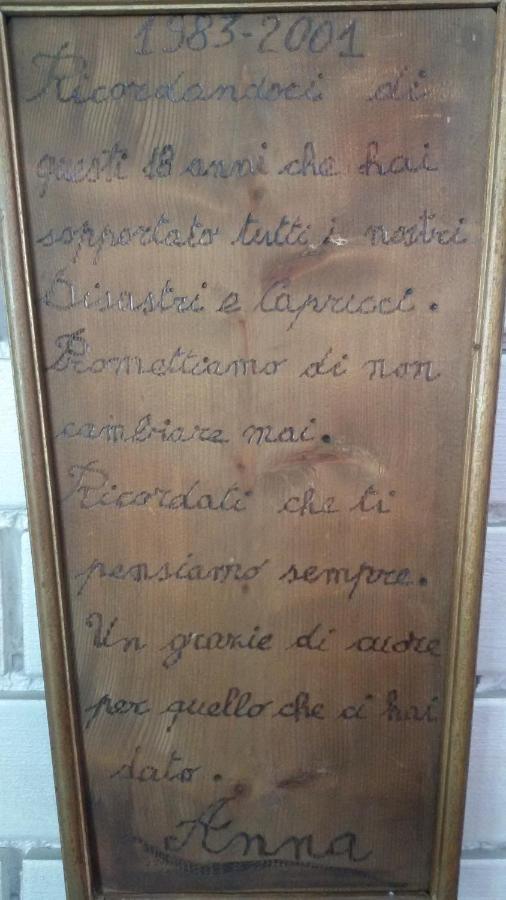 1983-2001
Ricordandoci di
questi 18 anni che hai
sopportato tutti i nostri
Disastri e Capricci.
Promettiamo di non
cambiare mai.
Ricordati che ti
pensiamo sempre.
Un grazie di cuore
per quello che ci hai
dato.
Anna